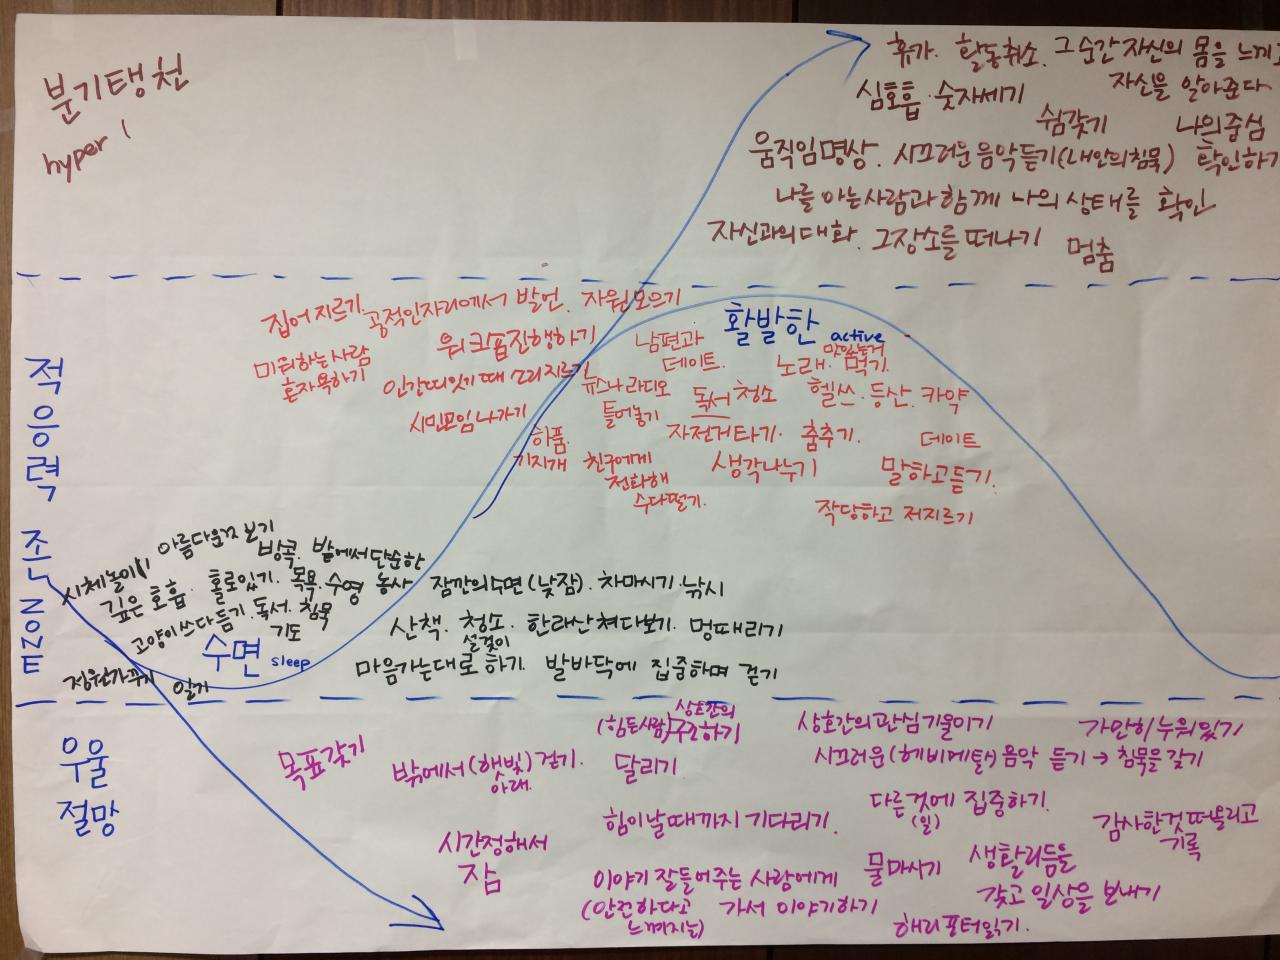 분기탱천
hyper
휴가. 활동취소. 그 순간 자신의 몸을 느끼
심호흡. 숫자세기
자신을 알아준다
쉼갖기
나의 중심
확인하기
움직임명상. 시끄러운 음악듣기(내안의 침묵)
나를 아는 사람과 함께 나의 상태를 확인
자신과의 대화. 그 장소를 떠나기
멈춤
적응력 존 ZONE
집어 지르기.
공적인 자리에서 발언.
자원모으기
워크숍진행하기
미워하는 사람
혼자 욕하기
인간띠잇기 때 소리 지르기
시민모임 나가기
활발한 active
남편과
데이트.
노래.
맛있는거
먹기.
뉴스나 라디오
틀어놓기
독서 청소
헬쓰. 등산. 카약
하품.
기지개
자전거타기. 춤추기.
데이트
친구에게
전화해
수다떨기.
생각나누기
말하고듣기.
작당하고 저지르기
시체놀이
아름다운 보기
방콕. 밭에서 단순한
농사
깊은 호흡. 홀로있기. 목욕. 수영
고양이 쓰다듬기. 독서. 침묵
기도
수면 sleep
정원가꾸기
일기
잠깐의 수면 (낮잠). 차마시기. 낚시
산책. 청소. 한라산 쳐다보기. 멍때리기
설겆이
마음가는대로 하기. 발바닥에 집중하며 걷기
우울
절망
목표갖기
밖에서 (햇빛) 걷기.
아래.
(힘든사람) 상호간의
하기
달리기
상호간의 관심 기울이기
가만히 누워있기
시끄러운 (헤비메탈) 음악 듣기 → 침묵을 갖기
시간정해서
잠
힘이 날때까지 기다리기.
다른것에 집중하기.
(일)
감사한것 떠올리고
기록
이야기 잘 들어주는 사람에게
(안전하다고
느껴지는)
가서 이야기하기
물마시기
생활리듬을
갖고 일상을 보내기
해리포터읽기.